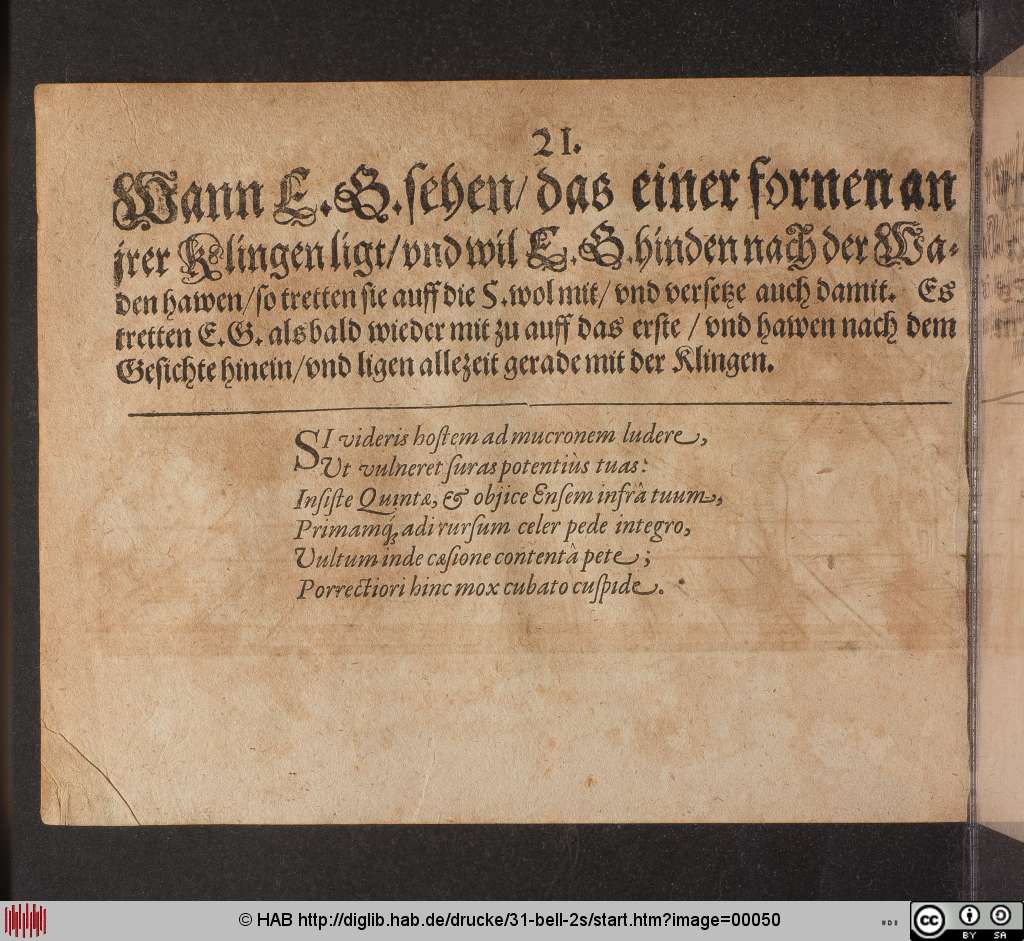 21.
Wann E. G. sehen/ das einer fornen an
jrer Klingen ligt/ vnd wil E. G. hinden nach der Wa-
den hawen/ so tretten sie auff die 5. wol mit/ vnd versetze auch damit. Es
tretten E. G. alsbald wieder mit zu auff das erste / vnd hawen nach dem
Gesichte hinein/ vnd ligen allezeit gerade mit der Klingen.
SI videris hostem ad mucronem ludere,
Ut vulneret suras potentiùs tuas:
Insiste Quintæ, & objice Ensem infrà tuum,
Primamq́; adi rursum celer pede integro,
Vultum inde cæsione contentâ pete;
Porrectiori hinc mox cubato cuspide.
© HAB http://diglib.hab.de/drucke/31-bell-2s/start.htm?image=00050
WDB
cc
BY SA